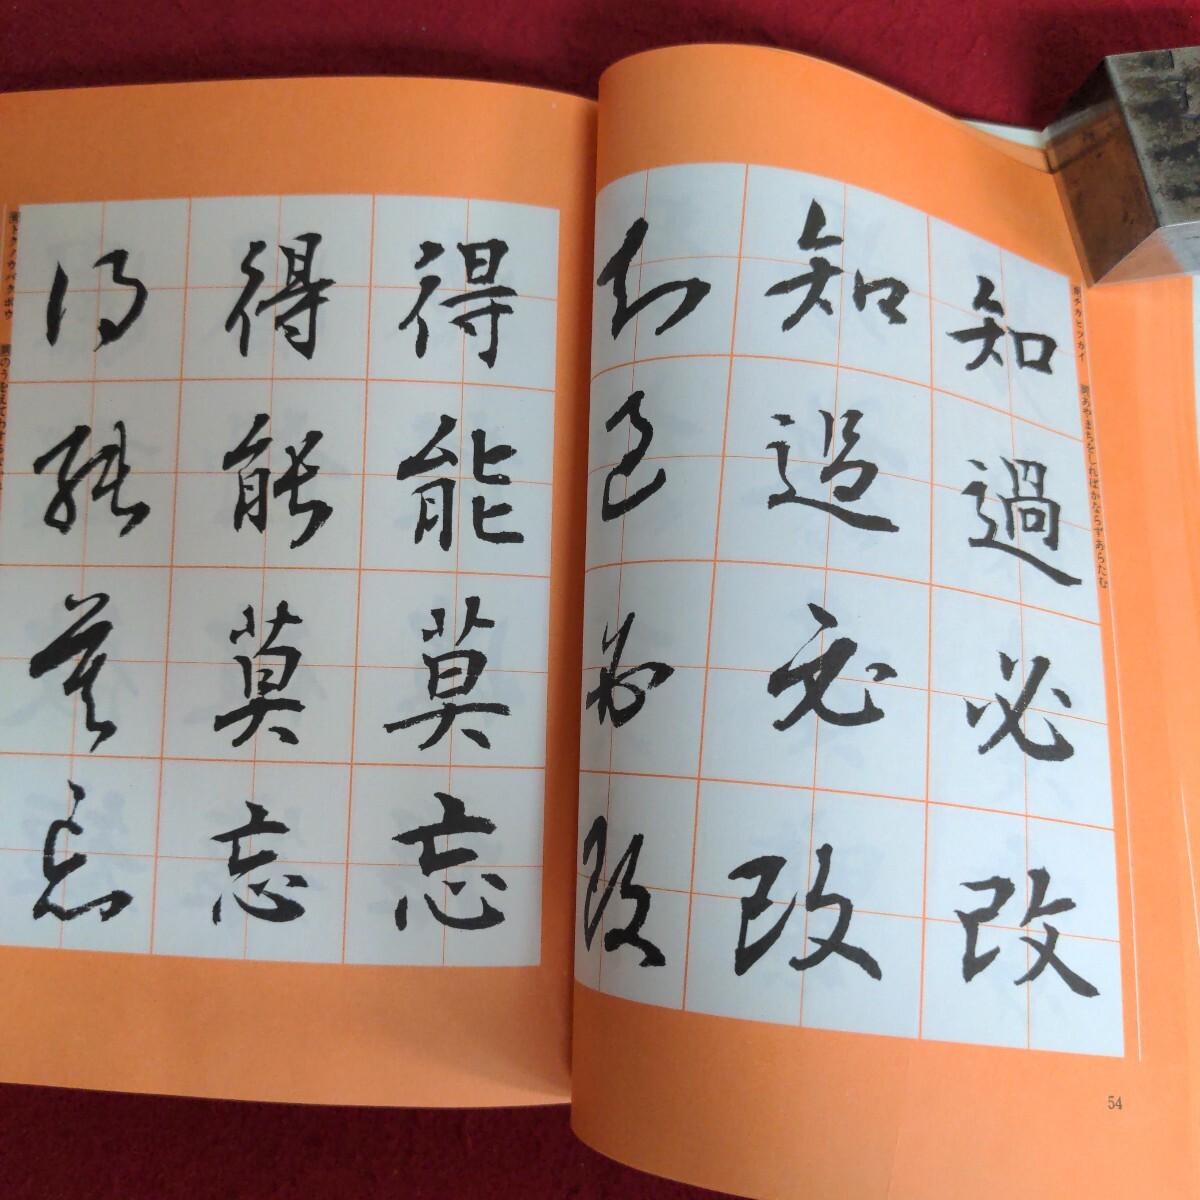 知過必改
知過必改
知過必改
チカヒツカイ
あやまちをしればかならずあらたむ
54
得能莫忘
得能莫忘
得能莫忘
トクノウバクボウ